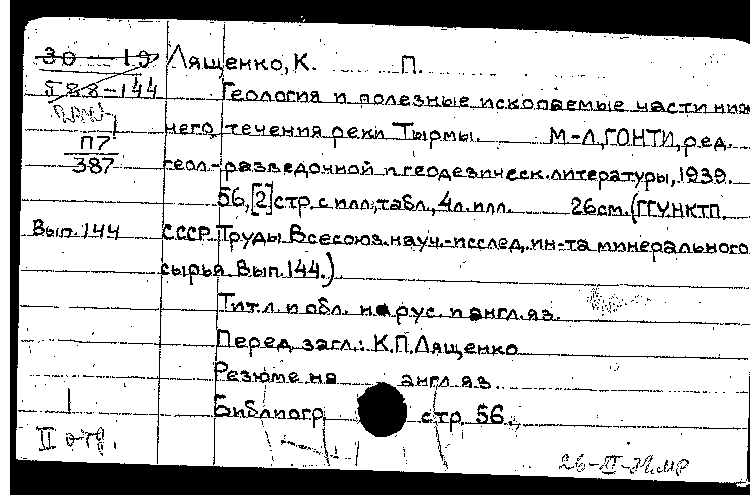 30 — 19 Лященко, К. П.
588-144 Геология и полезные ископаемые части ниж
него течения реки Тырмы. М-Л, ГОНТИ, ред.
П7
387 геол-разведочной и геодезическ. литературы, 1939.
56, [2] стр. с илл., табл., 4 л. илл. 26 см. (ГГУ НКТП
Вып. 144 СССР. Труды Всесоюз. науч.-исслед. ин-та минерального
сырья. Вып. 144.)
Тит. л. и обл. на рус. и англ. яз.
Перед загл.: К.П. Лященко
Резюме на англ. яз.
1 Библиогр стр. 56.
II отд.